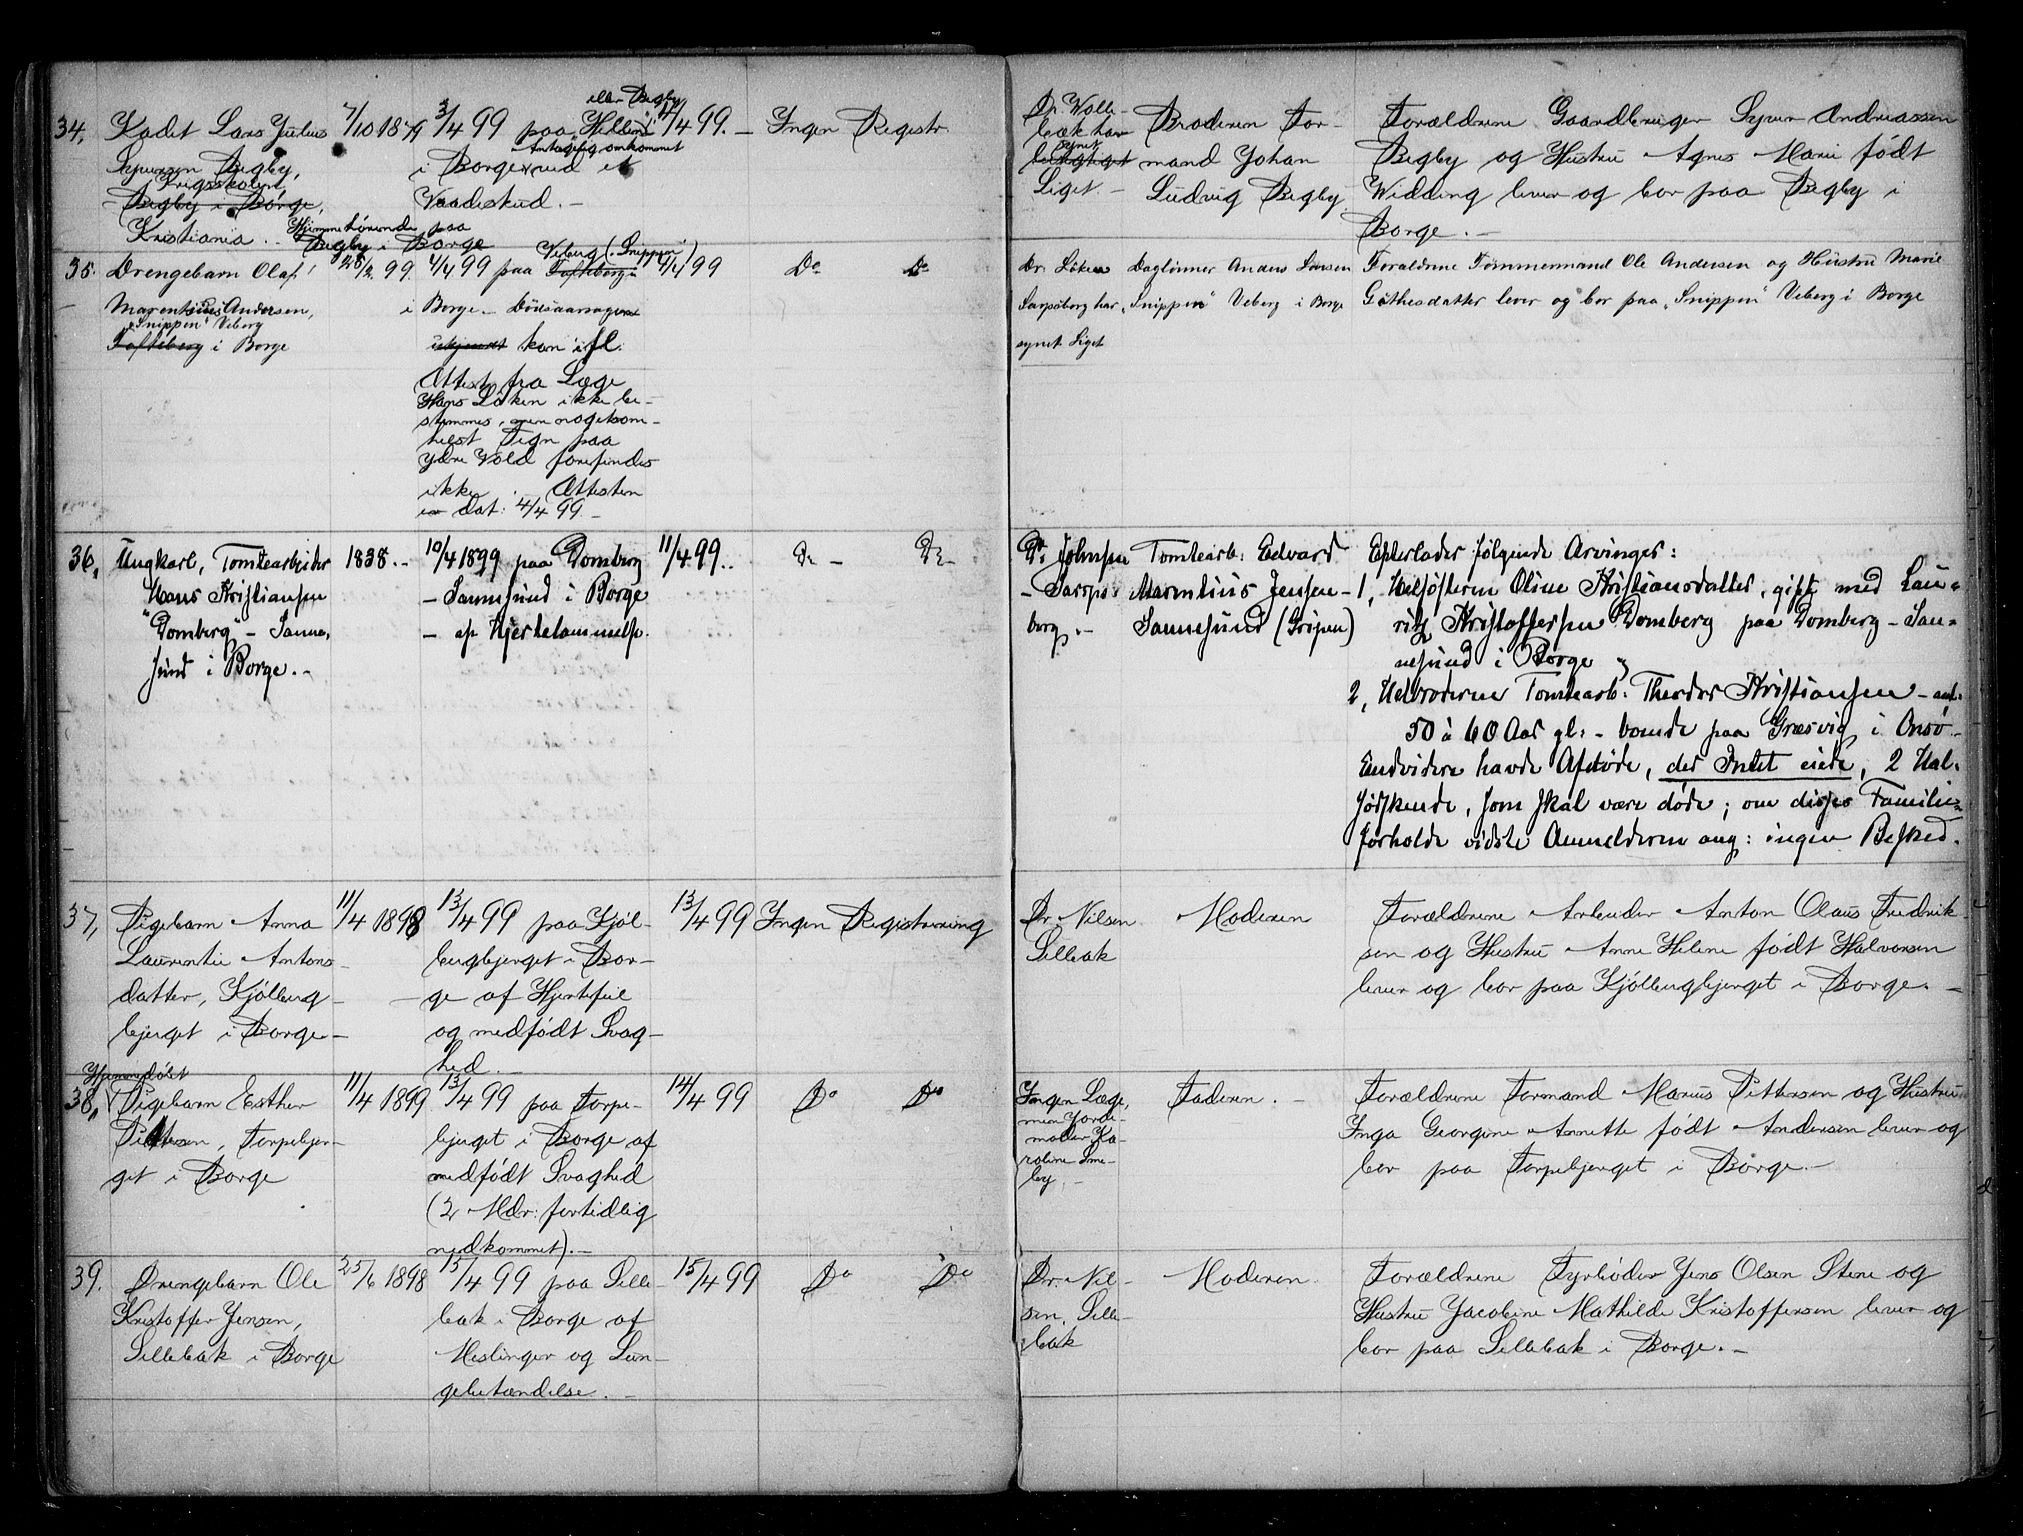 34,
Kadet Lars Julius
Syversen Begby,
Krigsskolen,
Begby i Borge,
Kristiania. -
Hjemmehørende paa
Begby i Borge
7/10 1879
3/4 99 paa "Hellen"
eller Begby
Antagelig omkommet
i Borge ved et
Vaadeskud. -
4/4 99. -
Ingen Registr.
Dr. Wolle-
bæk har
synet
besigtiget
Liget. -
Broderen For-
mand Johan
Ludvig Begby
Forældrene Gaardbruger Syver Andreassen
Begby og Hustru Agnes Marie født
Widding lever og bor paa Begby i
Borge. -
35.
Drengebarn Olaf
Marentius Andersen,
"Snippen" Veberg
Tofteberg i Borge
28/2 99.
4/4 99 paa Toftberg i
Veberg ("Snippen")
i Borge. Dødsaarsagen
ukjendt kan ifl.
Attest fra Læge
Hans Løken ikke be-
stemmes, men nogetsom-
helst Tegn paa
ydre Vold forefindes
ikke. Attesten
er dat. 4/4 99. -
4/4 99
Do
Do
Dr. Løken
Sarpsborg har
synet Liget
Daglønner Anders Larsen
"Snippen" Veberg i Borge
Forældrene Tømmermand Ole Andersen og Hustru Marie
Gøthesdatter lever og bor paa "Snippen" Veberg i Borge
36,
Ungkarl, Tomtearbeider
Hans Kristiansen
"Domberg" - Sanne-
sund i Borge. -
1838. -
10/4 1899 paa Domberg
- Sannesund i Borge
- af Hjertelammelse.
11/4 99.
Do -
Do -
Dr. Johnsen
- Sarps-
borg. -
Tomtearb: Edvard
Marentius Jensen -
Sannesund (Greipen)
Efterlader følgende Arvinger:
1, Helsøsteren Oline Kristiansdatter, gift med Lau-
ritz Kristoffersen Domberg paa Domberg - San-
nesund i Borge og
2, Helbroderen Tomtearb: Theodor Kristiansen - ant.
50 à 60 Aar gl: - boende paa Græsvig i Onsø.
Endvidere havde Afdøde, der Intet eiede, 2 Hal-
søskende, som skal være døde; om disses Familie-
forholde vidste Anmelderen ang: ingen Besked.
37,
Pigebarn Anna
Laurentie Antons-
datter, Kjølberg-
bjerget i Borge -
11/4 1898
13/4 99 paa Kjøl-
bergbjerget i Bor-
ge af Hjertefeil
og medfødt Svag-
hed. -
13/4 99
Ingen Registrering
Dr. Nilsen
Lillebak
Moderen
Forældrene Arbeider Anton Olaus Fredrik-
sen og Hustru Anne Helene født Halvorsen
lever og bor paa Kjølbergbjerget i Borge. -
Hjemmedøbt
38,
Pigebarn Esther
Pettersen, Torpebjer-
get i Borge
11/4 1899
13/4 99 paa Torpe-
bjerget i Borge af
medfødt Svaghed
(2 Mdr: fortidlig
nedkommet). -
14/4 99
Do
Do
Ingen Læge,
men Jorde-
moder Ka-
roline Sme-
by. -
Faderen. -
Forældrene Formand Marius Pettersen og Hustru
Inga Georgine Annette født Andersen lever og
bor paa Torpebjerget i Borge. -
39.
Drengebarn Ole
Kristoffer Jensen,
Lillebak i Borge
25/6 1898
15/4 99 paa Lille-
bak i Borge af
Meslinger og Lun-
gebetændelse. -
15/4 99
Do
Do
Dr. Nil-
sen, Lille-
bak
Moderen.
Forældrene Fyrbøder Jens Olsen Stene og
Hustru Jacobine Mathilde Kristoffersen lever og
bor paa Lillebak i Borge. -